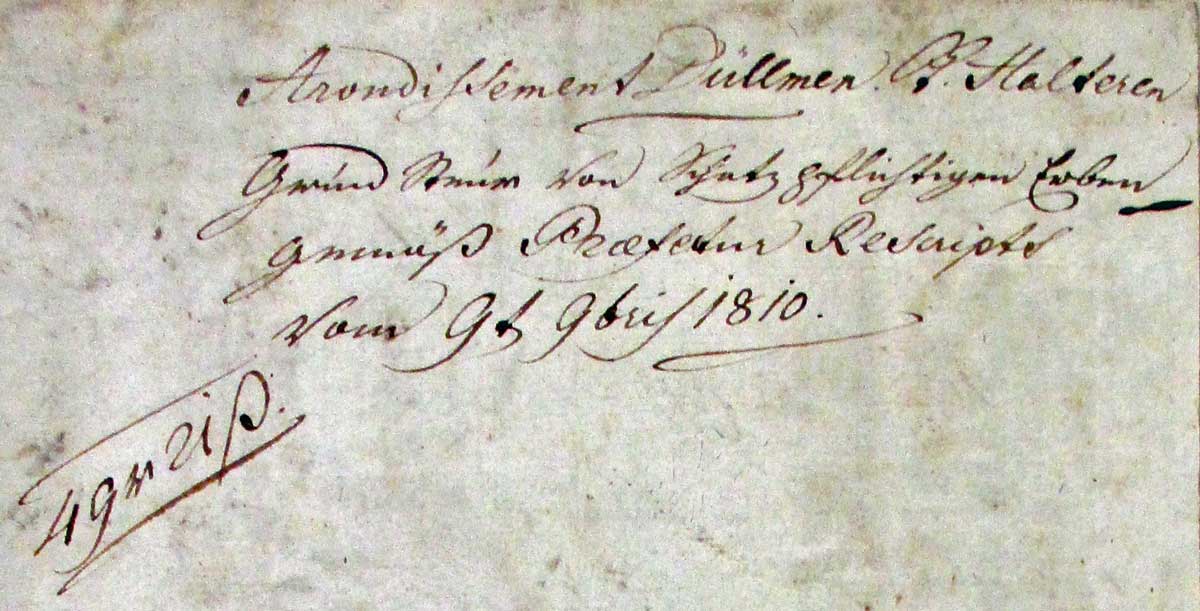 Arondissement Düllmen. B. Halteren
Grund Steur von Schatzpflichtigen Erben
gemäß Præfectur Rescripts
vom 9t 9bris 1810.
49er Riß.